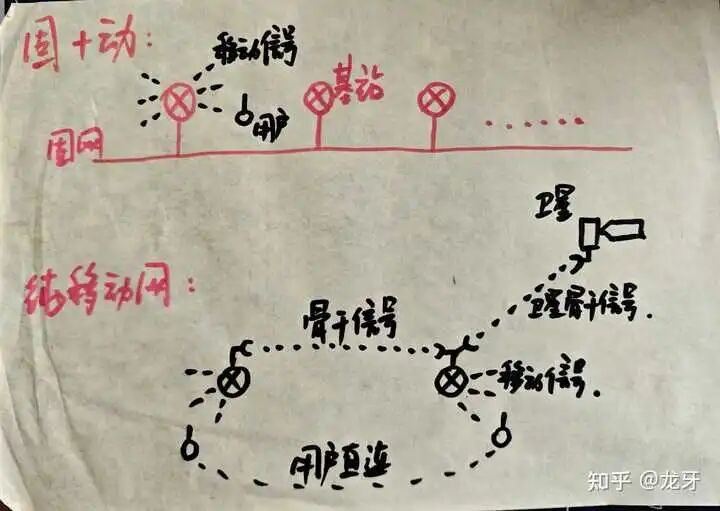 固＋动：
移动信号
基站
用户
固网
......
卫星
纯移动网：
骨干信号
卫星骨干信号.
移动信号.
用户直连
知乎 @龙牙